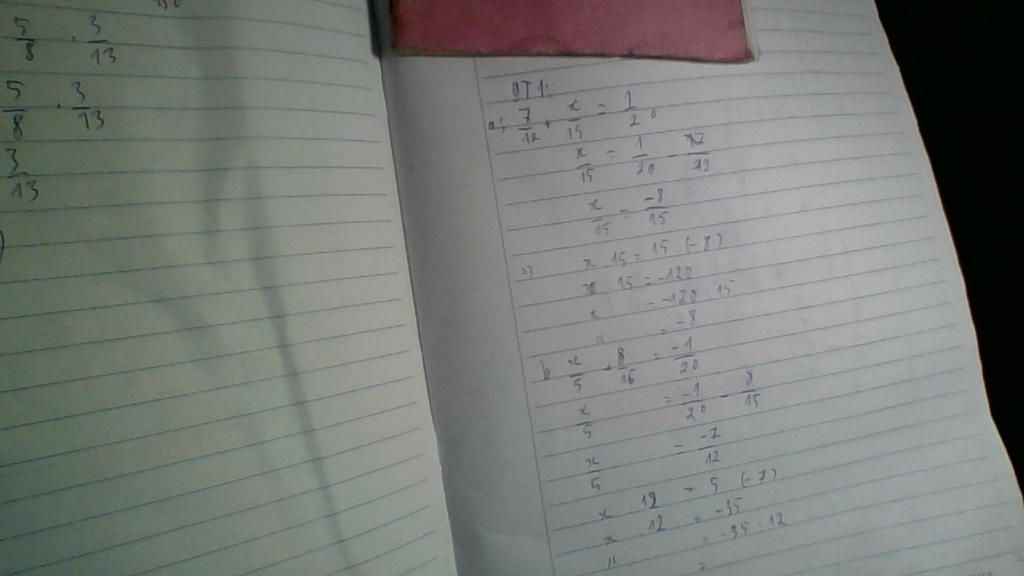 5/8 . 3/13
5/8 . 3/13
3/13
BT1:
a; 7/12 + x/15 = 1/20
x/15 = 1/20 - 7/12
x/15 = -8/15
=> x . 15 = 15 (-8)
x . 15 = -120
x = -120 : 15
x = -8
b) x/5 + 8/15 = -1/20
x/5 = -1/20 - 8/15
x/5 = -7/12
x . 12 = 5 (-7)
x . 12 = -35
x = -35 : 12
=